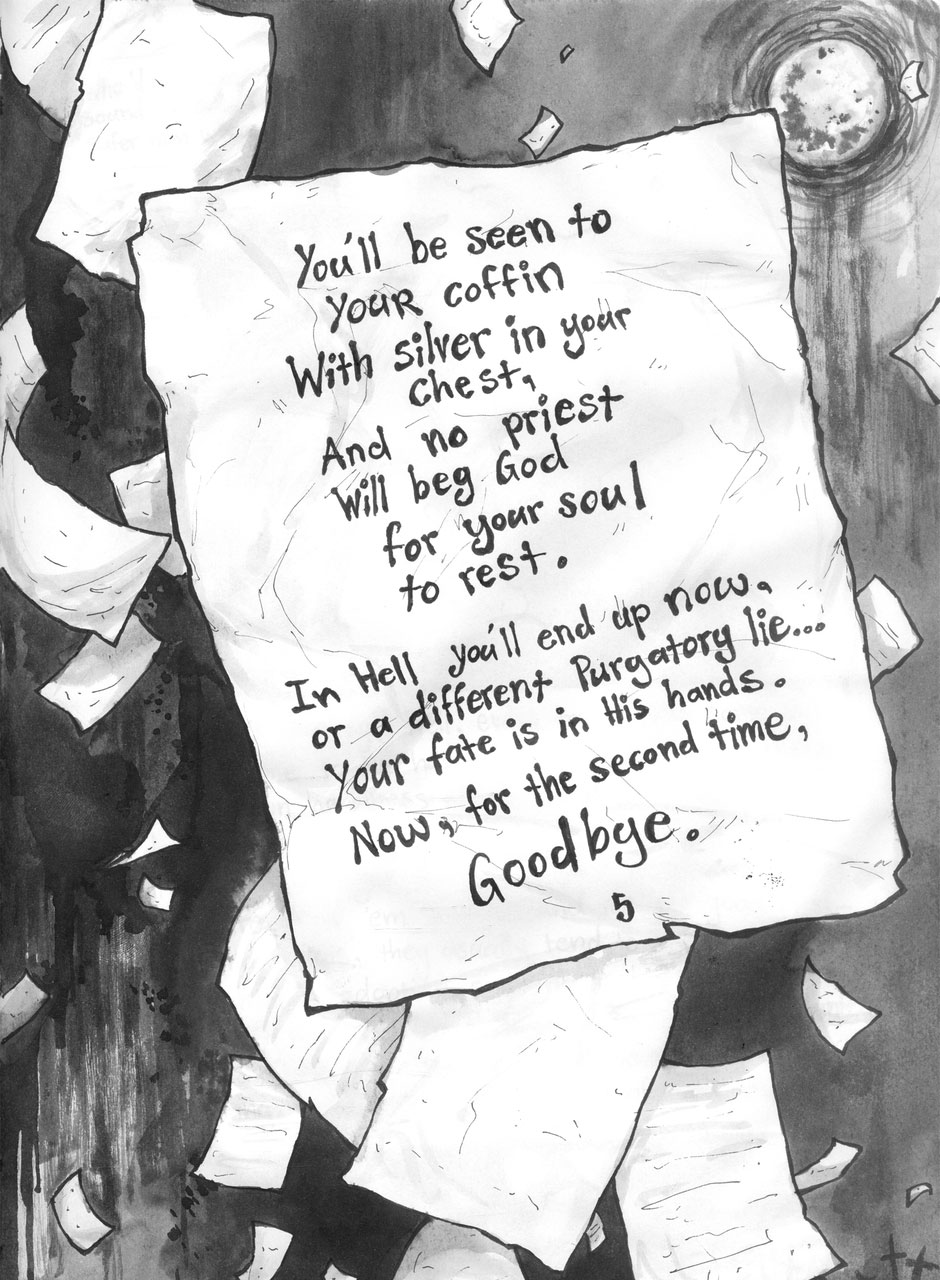 You'll be seen to
your coffin
With silver in your
chest,
And no priest
Will beg God
for your soul
to rest.
In Hell you'll end up now,
or a different Purgatory lie...
Your fate is in His hands.
Now, for the second time,
Goodbye.
5